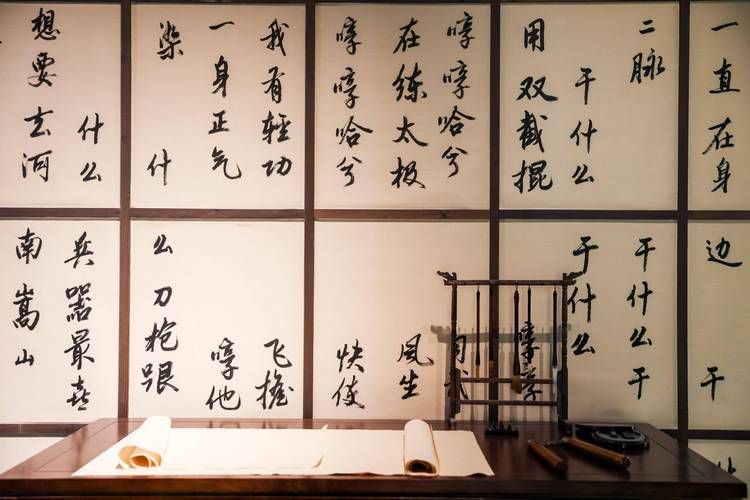 一直在身边 干
二脉 干什么干
干什么 干什么
用双截棍 哼
哼哼哈兮
在练太极 风生
哼哼哈兮 快使
我有轻功 飞檐
一身正气 哼他
染 什么刀枪跟
什么 兵器最喜
想要去河南嵩山